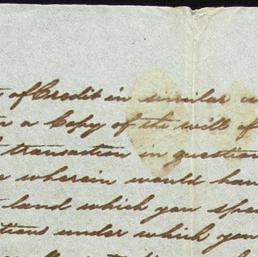 of Credit in similar
a Copy of the will of
transaction in question
wherein would hav
land which you spe
tions under which you